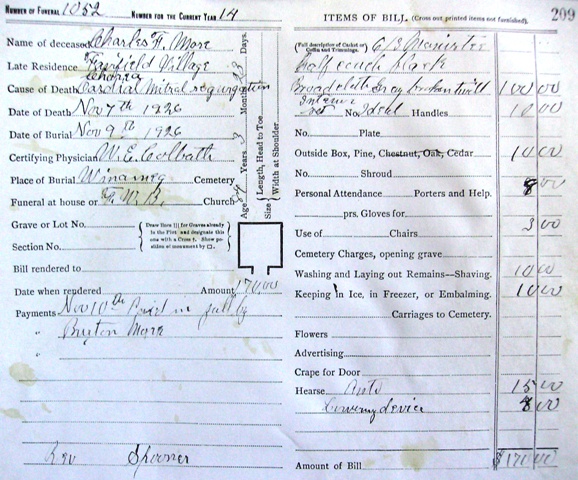 NUMBER OF FUNERAL 1052 NUMBER FOR THE CURRENT YEAR 14
Name of deceased Charles F. More
Late Residence Fairfield Village
Chorea
Cause of Death Cardial Mitral regurgitation
Date of Death Nov 7th 1926
Date of Burial Nov 9th 1926
Certifying Physician W. E. Colbath
Place of Burial Winameg Cemetery
Funeral at house or F. W. B. Church
Age Years Months Days.
Size Length, Head to Toe.
Width at Shoulder.
Grave or Lot No.
Section No.
Draw lines ||| for Graves already in the Plot and designate this one with a Cross †. Show position of monument by □.
Bill rendered to
Date when rendered Amount 170.00
Payments Nov 10th Paid in full by
" Burton More
"
Rev Spooner
ITEMS OF BILL. (Cross out printed items not furnished). 209
(Full description of Casket or Coffin and Trimmings.)
half couch black
Broadcloth Gray broken twill 100 00
Interior
No. Ideal Handles
No. Plate
Outside Box, Pine, Chestnut, Oak, Cedar 14 00
No. Shroud
Personal Attendance Porters and Help. 8 00
prs. Gloves for
Use of Chairs 3 00
Cemetery Charges, opening grave
Washing and Laying out Remains—Shaving. 10 00
Keeping in Ice, in Freezer, or Embalming. 10 00
Carriages to Cemetery.
Flowers
Advertising.
Crape for Door
Hearse Auto 15 00
Lowering device 8 00
Amount of Bill $170 00